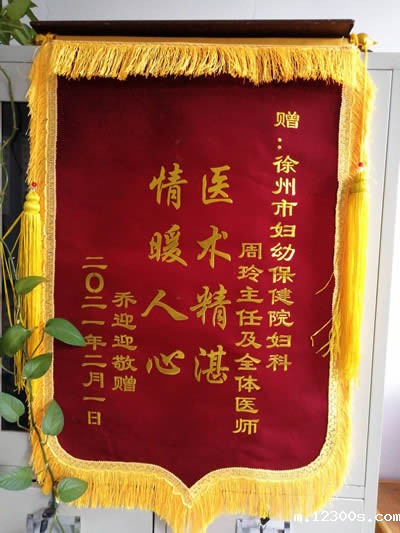 赠：徐州市妇幼保健院妇科
周玲主任及全体医师
医术精湛
情暖人心
乔迎迎敬赠
二〇二一年二月一日
m.12300s.com